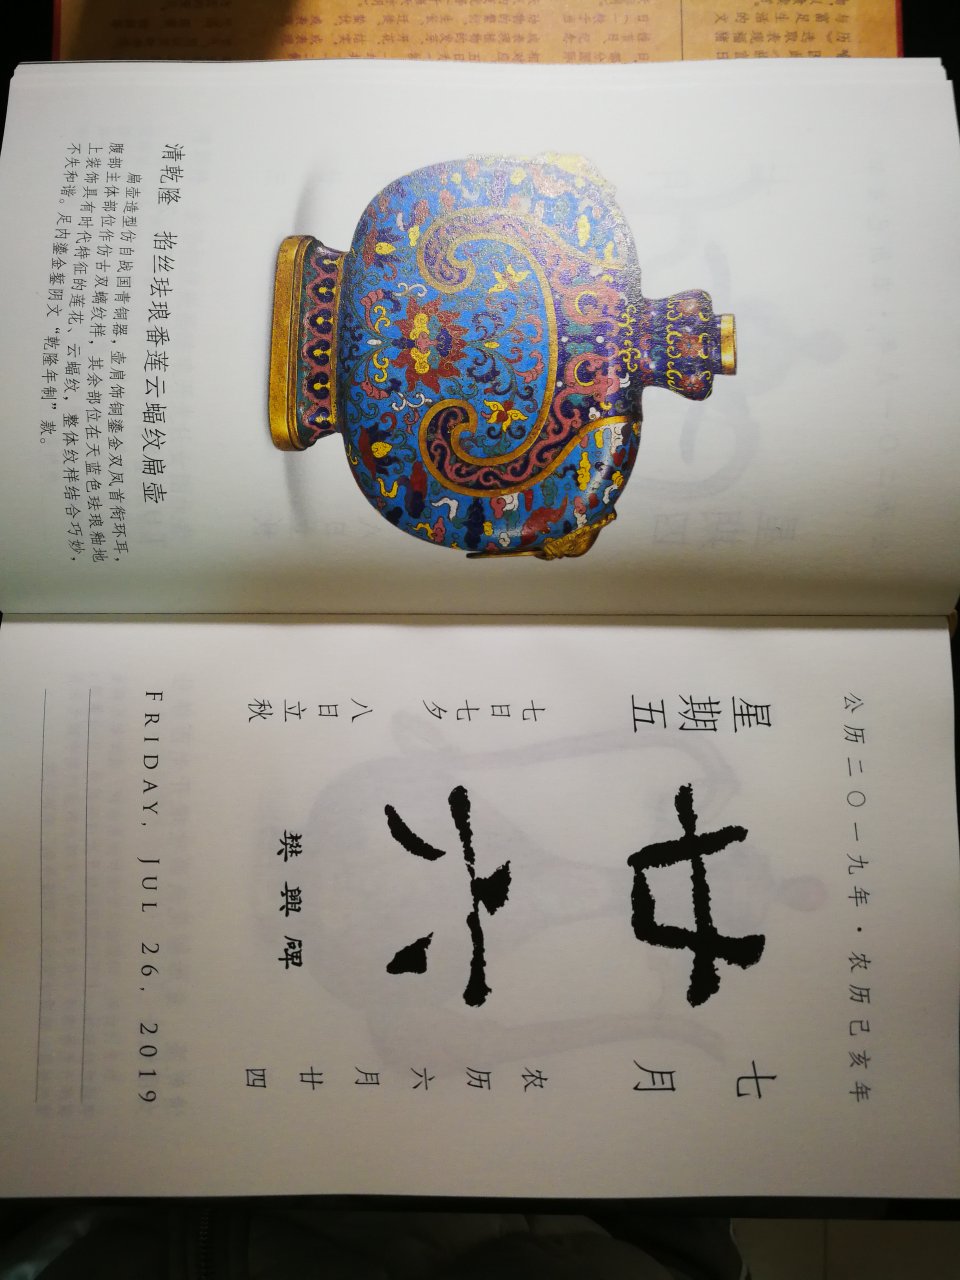 清乾隆 掐丝珐琅番莲云蝠纹扁壶
扁壶造型仿自战国青铜器，壶肩饰铜鎏金双凤首衔环耳，
腹部主体部位作仿古双螭纹样，其余部位在天蓝色珐琅釉地
上装饰具有时代特征的莲花、云蝠纹，整体纹样结合巧妙，
不失和谐。足内鎏金錾阴文“乾隆年制”款。
公历二〇一九年·农历己亥年
星期五
七月
廿六
七日七夕
八日立秋
农历六月廿四
樊興碑
FRIDAY, JUL 26, 2019